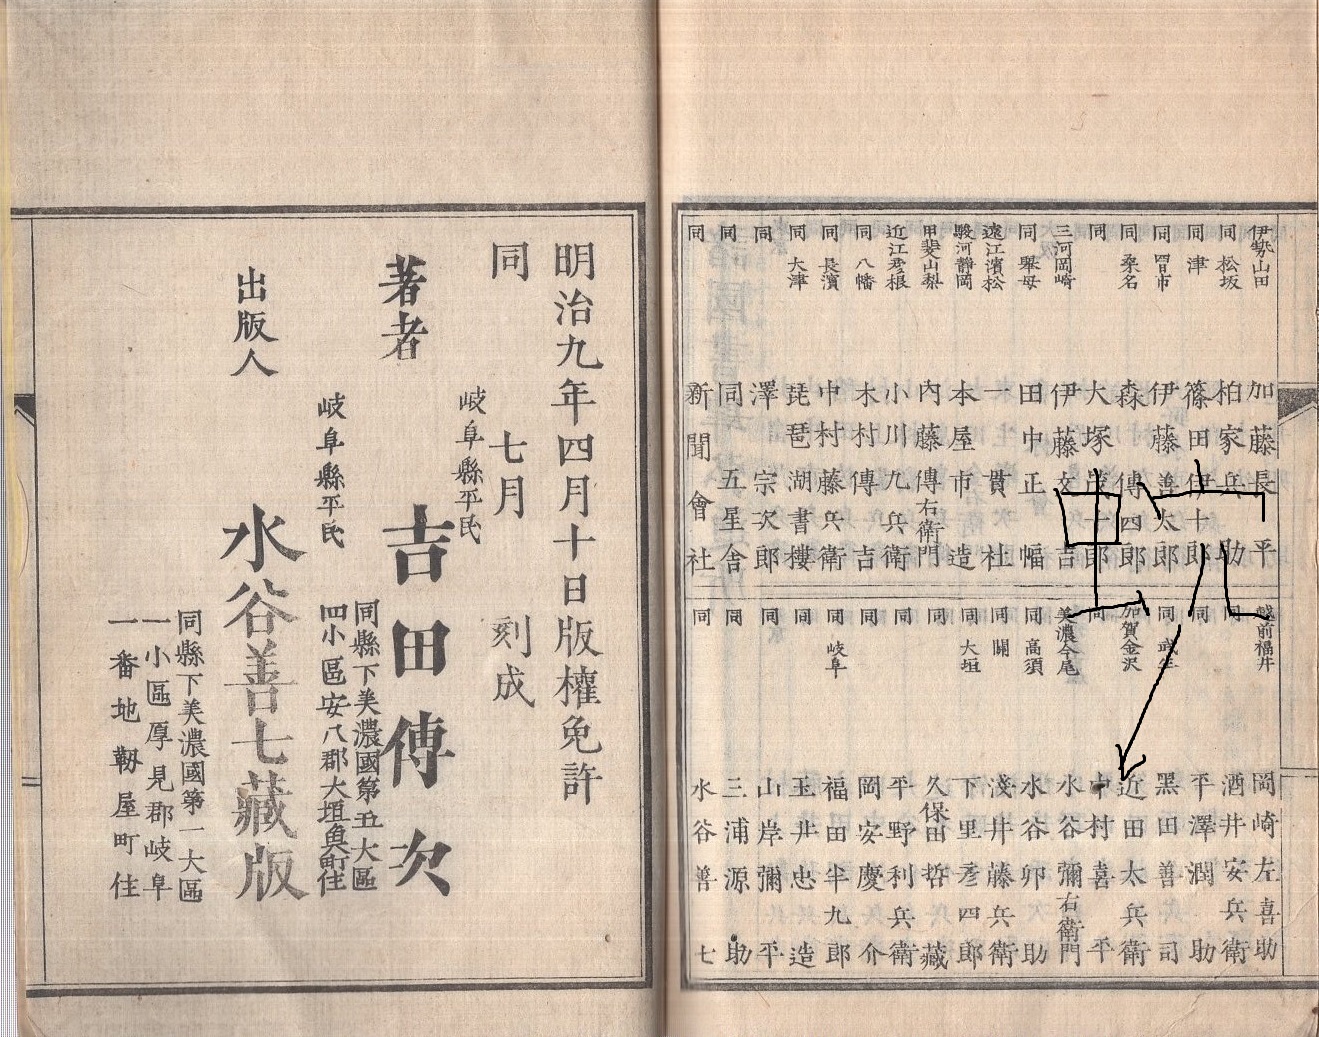 伊勢山田 加藤長平
同 松坂 柏家兵助
同 津 篠田伊十郎
同 四日市 伊藤善太郎
同 桑名 森傳四郎
同 大塚
三河岡崎 伊藤文吉
同 擧母 田中正幅
遠江濱松 一貫社
駿河静岡 本屋市造
甲斐山梨 內藤傳右衛門
近江彦根 小川九兵衛
同 八幡 木村傳吉
同 長濱 中村藤兵衛
同 大津 琵琶湖書樓
同 澤宗次郎
同 同五星舎
同 新聞會社
越前福井 岡崎左喜助
同 酒井安兵衛
同 平澤潤助
同 武生 黑田善司
加賀金沢 近田太兵衛
同 中村喜平
美濃今尾 水谷彌右衛門
同 高須 水谷卯助
同 關 淺井藤兵衛
同 大垣 下里彦四郎
同 久保田哲藏
同 平野利兵衛
同 岡安慶介
同 岐阜 福田半九郎
同 玉井忠造
同 山岸彌平
同 三浦源助
同 水谷善七
明治九年四月十日版權免許
同 七月 刻成
岐阜縣平民
著者 吉田傳次
同縣下美濃國第五大區
四小區安八郡大垣魚町住
岐阜縣平民
出版人 水谷善七藏版
同縣下美濃國第一大區
一小區厚見郡岐阜
一番地靱屋町住